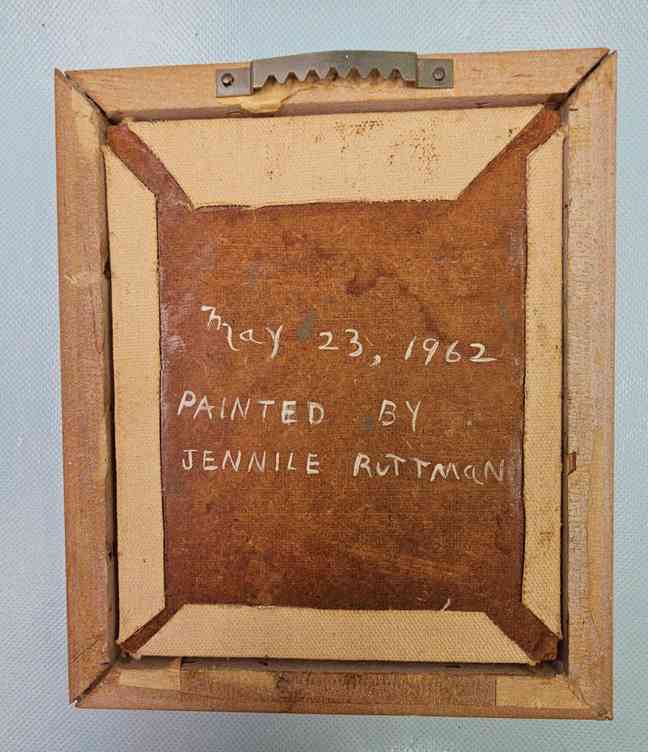 May 23, 1962
PAINTED BY
JENNILE RUTTMaN